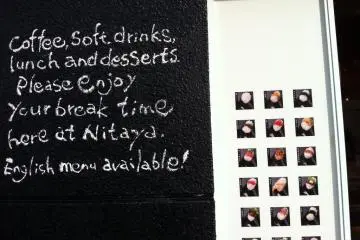 Coffee, Soft drinks,
lunch and desserts.
Please enjoy
your break time
here at Nitaya.
English menu available!